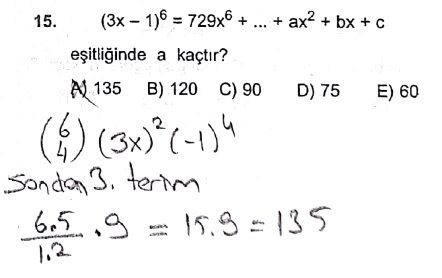 15. (3x – 1)⁶ = 729x⁶ + ... + ax² + bx + c
eşitliğinde a kaçtır?
A) 135 B) 120 C) 90 D) 75 E) 60
(6 4) (3x)² (-1)⁴
Sondan 3. terim
6.5/1.2 . 9 = 15.9 = 135